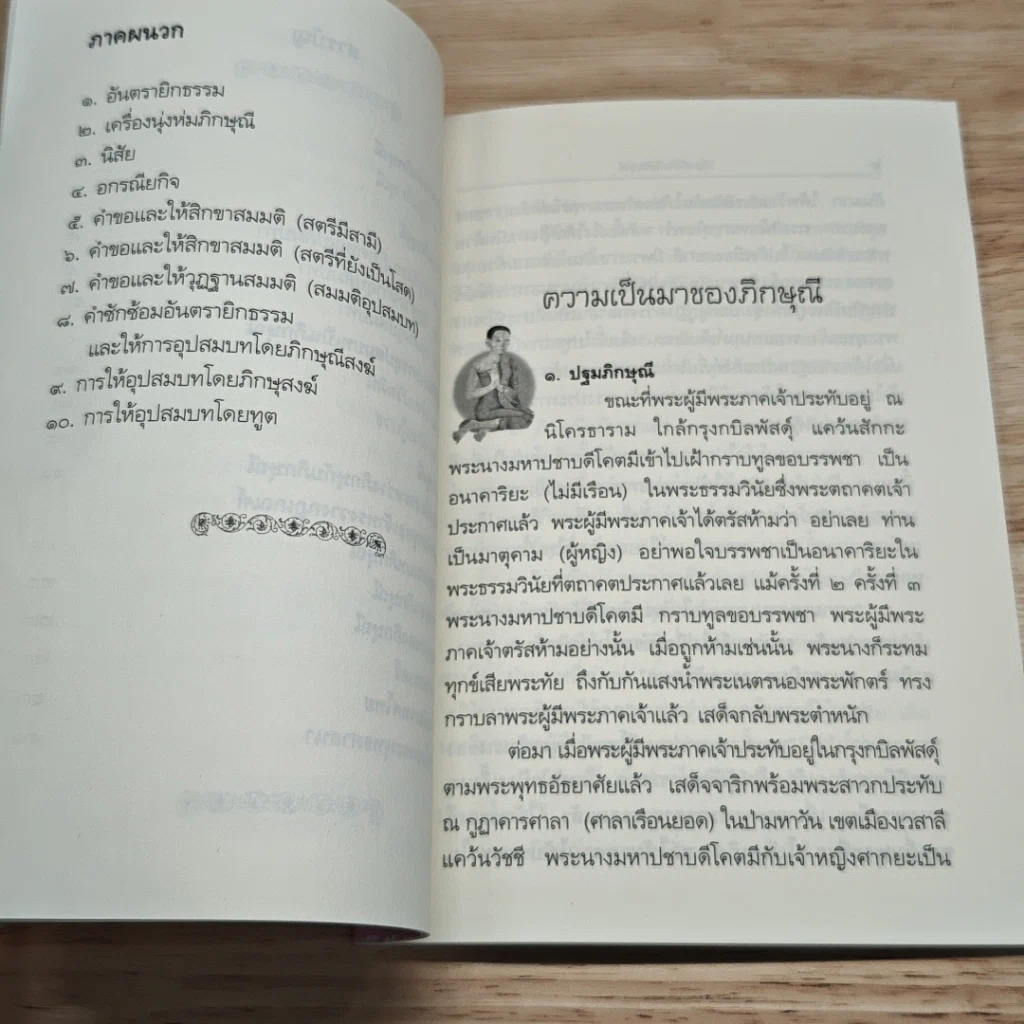 ภาคผนวก
๑. อันตรายิกธรรม
๒. เครื่องนุ่งห่มภิกษุณี
๓. นิสัย
๔. อกรณียกิจ
๕. คำขอและให้สิกขาสมมติ (สตรีมีสามี)
๖. คำขอและให้สิกขาสมมติ (สตรีที่ยังเป็นโสด)
๗. คำขอและให้วุฏฐานสมมติ (สมมติอุปสมบท)
๘. คำซักซ้อมอันตรายิกธรรม
และให้การอุปสมบทโดยภิกษุณีสงฆ์
๙. การให้อุปสมบทโดยภิกษุสงฆ์
๑๐. การให้อุปสมบทโดยทูต
ความเป็นมาของภิกษุณี
๑. ปฐมภิกษุณี
ขณะที่พระผู้มีพระภาคเจ้าประทับอยู่ ณ
นิโครธาราม ใกล้กรุงกบิลพัสดุ์ แคว้นสักกะ
พระนางมหาปชาบดีโคตมีเข้าไปเฝ้ากราบทูลขอบรรพชา เป็น
อนาคาริยะ (ไม่มีเรือน) ในพระธรรมวินัยซึ่งพระตถาคตเจ้า
ประกาศแล้ว พระผู้มีพระภาคเจ้าได้ตรัสห้ามว่า อย่าเลย ท่าน
เป็นมาตุคาม (ผู้หญิง) อย่าพอใจบรรพชาเป็นอนาคาริยะใน
พระธรรมวินัยที่ตถาคตประกาศแล้วเลย แม้ครั้งที่ ๒ ครั้งที่ ๓
พระนางมหาปชาบดีโคตมี กราบทูลขอบรรพชา พระผู้มีพระ
ภาคเจ้าตรัสห้ามอย่างนั้น เมื่อถูกห้ามเช่นนั้น พระนางก็ระทม
ทุกข์เสียพระทัย ถึงกับกันแสงน้ำพระเนตรนองพระพักตร์ ทรง
กราบลาพระผู้มีพระภาคเจ้าแล้ว เสด็จกลับพระตำหนัก
ต่อมา เมื่อพระผู้มีพระภาคเจ้าประทับอยู่ในกรุงกบิลพัสดุ์
ตามพระพุทธอัธยาศัยแล้ว เสด็จจาริกพร้อมพระสาวกประทับ
ณ กูฏาคารศาลา (ศาลาเรือนยอด) ในป่ามหาวัน เขตเมืองเวสาลี
แคว้นวัชชี พระนางมหาปชาบดีโคตมีกับเจ้าหญิงศากยะเป็น